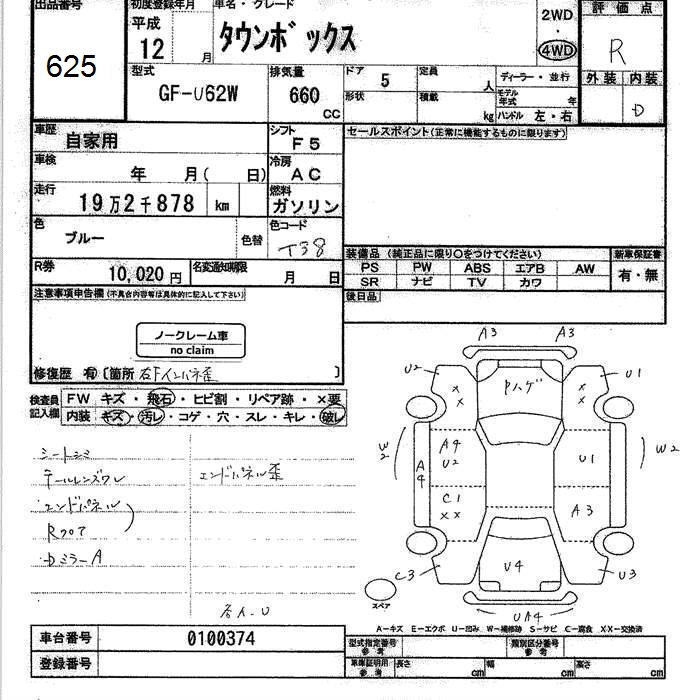 出品番号
625
初度登録年月
平成
12
月
車名・グレード
タウンボックス
2WD
・
4WD
評価点
R
外装
内装
D
型式
GF-U62W
排気量
660
CC
ドア
5
定員
人
形状
積載
kg
ディーラー・並行
モデル年式
年
ハンドル 左・右
車歴
自家用
シフト
F5
車検
年 月( 日)
冷房
AC
走行
19万2千878
km
燃料
ガソリン
色
ブルー
色替
色コード
T38
R券
10,020 円
名変通知期限
月 日
セールスポイント(正常に機能するものに限ります)
装備品 (純正品に限り○をつけてください)
新車保証書
PS PW ABS エアB AW
SR ナビ TV カワ
有・無
後日品
注意事項申告欄 (不具合内容等は具体的に記入して下さい)
ノークレーム車
no claim
修復歴 有 〔箇所 右Fインパネ歪 〕
検査員
記入欄
FW キズ・飛石・ヒビ割・リペア跡・×要
内装 キズ・汚レ・コゲ・穴・スレ・キレ・破レ
シートシミ
テールレンズワレ
エンドパネル歪
エンドパネル
Rフロア
DミラーA
A3
A3
U2
U1
Pハゲ
××
××
W2
A4
U2
A4
U1
W2
C1
××
A3
C3
U4
U3
スペア
UA4
A-キズ E-エクボ U-凹み W-補修跡 S-サビ C-腐食 XX-交換済
車台番号
0100374
登録番号
型式指定番号
参考
類別区分番号
参考
車庫証明用
参考
長さ
cm
幅
cm
高さ
cm